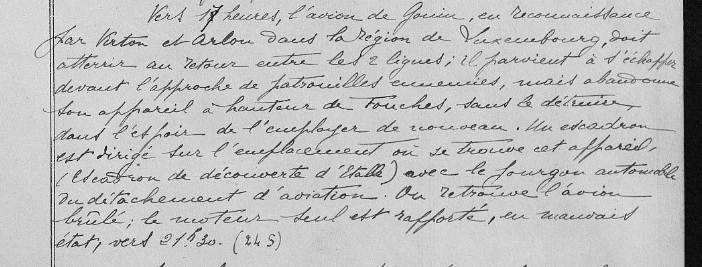 Vers 17 heures, l'avion de Gouin, en reconnaissance
par Virton et Arlon dans la région de Luxembourg, doit
atterrir au retour entre les 2 lignes; il parvient à s'échapper
devant l'approche de patrouilles ennemies, mais abandonne
son appareil à hauteur de Fouches, sans le détruire,
dans l'espoir de l'employer de nouveau. Un escadron
est dirigé sur l'emplacement où se trouve cet appareil,
(Escadron de découverte d'Etalle) avec le fourgon automobile
du détachement d'aviation. On retrouve l'avion
brûlé; le moteur seul est rapporté, en mauvais
état, vers 21h30. (245)